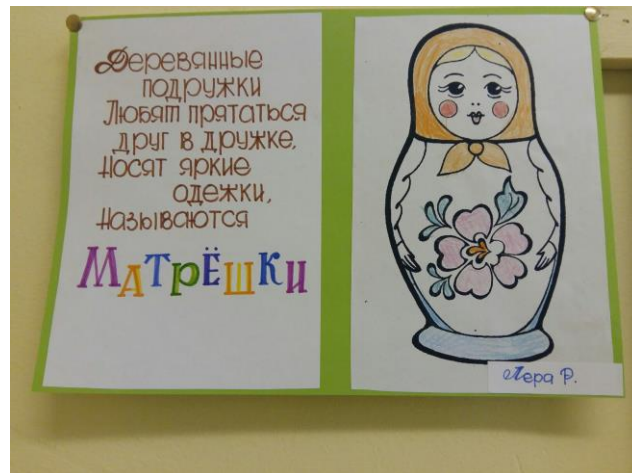 Деревянные
подружки
Любят прятаться
друг в дружке,
Носят яркие
одежки,
Называются
МАТРЁШКИ
Лера Р.